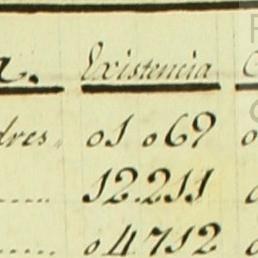 a. Existencia C
dres,, 01 069 0
..... 12.211
..... 04712